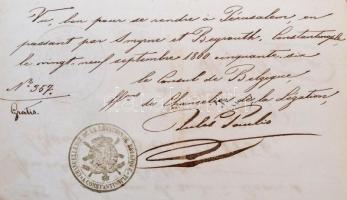 Vu, bon pour se rendre à Jérusalem, en
passant par Smyrne et Beyrouth, Constantinople
le vingt neuf septembre 1800 cinquante six
Le Consul de Belgique
N° 367.
Gratis.
de Chancelier de la Légation,
Jules
CHANCELLERIE DE LA LEGATION DE BELGIQUE
CONSTANTINOPLE